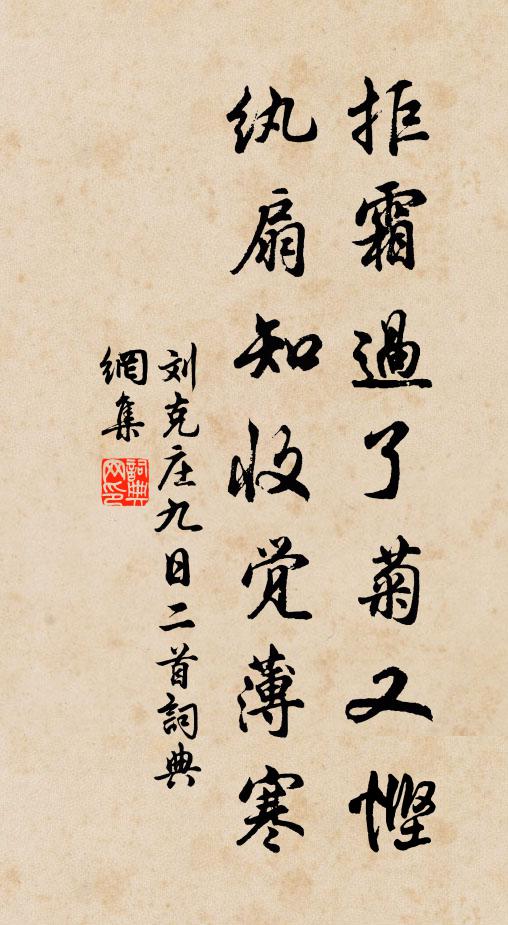 拒霜過了菊又悭
纨扇知收觉薄寒
刘克庄九日二首詞典
網集
詞典网印